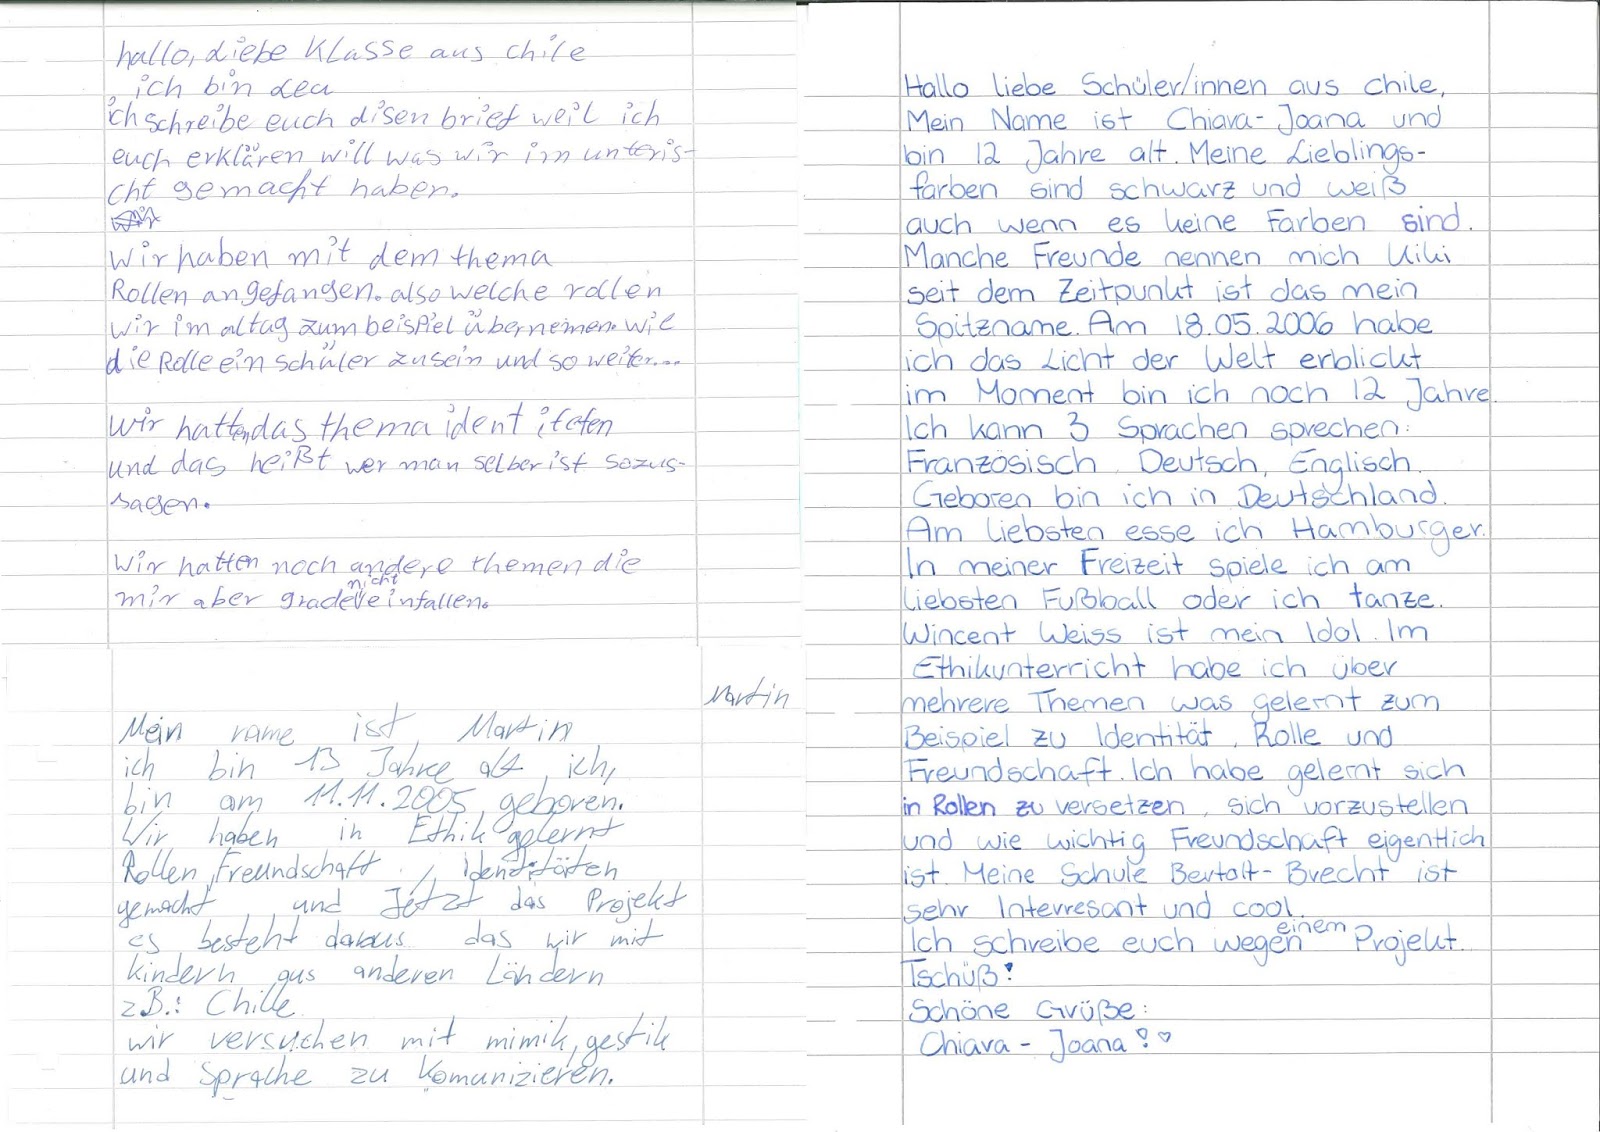 hallo, liebe Klasse aus chile
ich bin Lea
ich schreibe euch disen brief weil ich
euch erklären will was wir im unteris-
cht gemacht haben.
wir haben mit dem thema
Rollen angefangen. also welche rollen
wir im altag zum beispiel überneimen. wie
die Rolle ein schüler zu sein und so weiter...
wir hatten das thema identitäten
und das heißt wer man selber ist sozus-
sagen.
wir hatten noch andere themen die
mir aber grade nicht einfallen.
Martin
Mein name ist Martin
ich bin 13 Jahre alt, ich,
bin am 11.11.2005 geboren.
Wir haben in Ethik gelernt
Rollen, Freundschaft, Identitäten
gemacht, und Jetzt das Projekt
es besteht daraus das wir mit
kindern aus anderen Ländern
z.B.: Chille
wir versuchen mit mimik, gestik
und Sprache zu Komunizieren.
Hallo liebe Schüler/innen aus Chile,
Mein Name ist Chiara-Joana und
bin 12 Jahre alt. Meine Lieblings-
farben sind schwarz und weiß
auch wenn es keine Farben sind.
Manche Freunde nennen mich Kiki
seit dem Zeitpunkt ist das mein
Spitzname. Am 18.05.2006 habe
ich das Licht der Welt erblickt
im Moment bin ich noch 12 Jahre.
Ich kann 3 Sprachen sprechen:
Französisch, Deutsch, Englisch.
Geboren bin ich in Deutschland.
Am liebsten esse ich Hamburger.
In meiner Freizeit spiele ich am
liebsten Fußball oder ich tanze.
Wincent Weiss ist mein Idol. Im
Ethikunterricht habe ich über
mehrere Themen was gelernt zum
Beispiel zu Identität, Rolle und
Freundschaft. Ich habe gelernt sich
in Rollen zu versetzen, sich vorzustellen
und wie wichtig Freundschaft eigentlich
ist. Meine Schule Bertolt-Brecht ist
sehr Interresant und cool.
Ich schreibe euch wegen einem Projekt.
Tschüß!
Schöne Grüße:
Chiara-Joana!♡